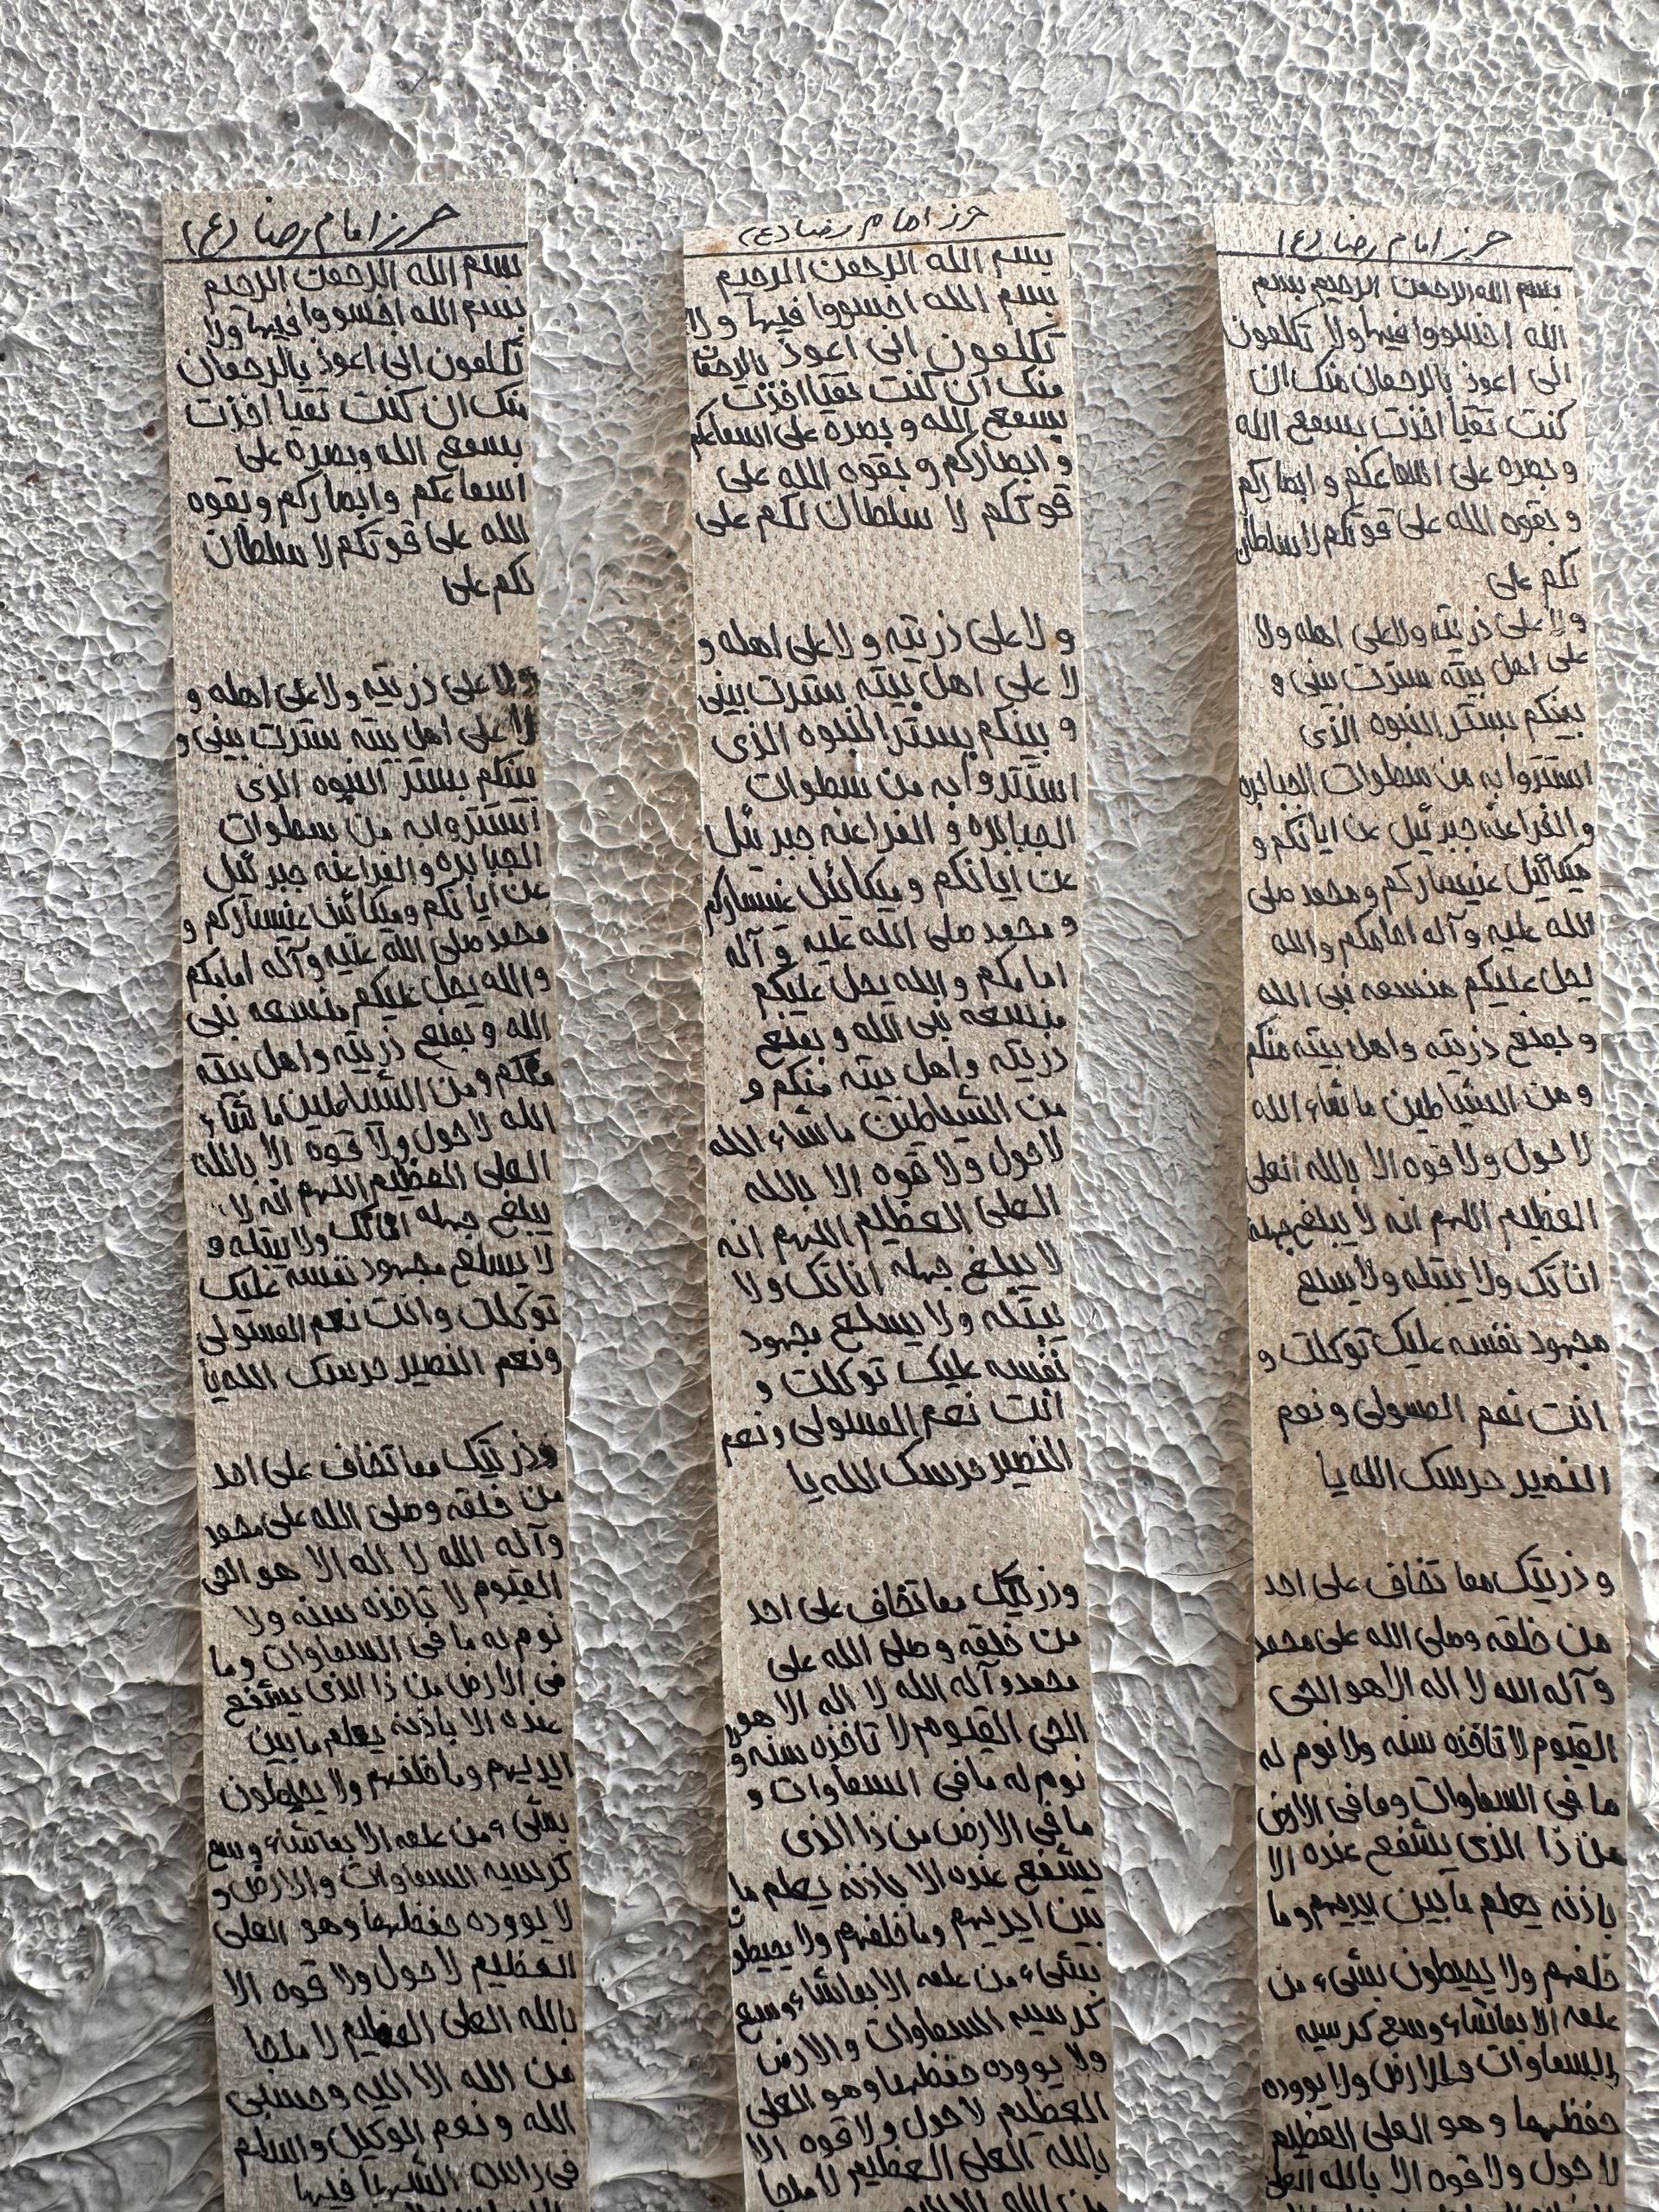 حرز امام رضا (ع)
بسم الله الرحمن الرحیم
بسم الله اخسووا فیها ولا
تکلمون انی اعوذ بالرحمان
منک ان کنت تقیا اخذت
بسمع الله وبصره علی
اسماعکم وابصارکم وبقوه
الله علی قوتکم لا سلطان
لکم علی
ولا علی ذریته ولا علی اهله و
لا علی اهل بیته سترت بینی و
بینکم بستر النبوه الذی
استتروا به من سطوات
الجبابره و الفراعنه جبرئیل
عن ایمانکم ومیکائیل عنیسارکم و
محمد صلی الله علیه وآله امامکم
والله یحل علیکم منسمعه نبی
الله و بمنع ذریته واهل بیته
منکم ومن الشیاطین ما شاء
الله لا حول ولا قوة الا بالله
العلی العظیم اللهم انه لا
یبلغ جهله اناتک ولا یبتله و
لا یسلع مجهود نفسه علیک
توکلت وانت نعم المسولی
ونعم النصیر حرسک الله یا
وذریتک مما تخاف علی احد
من خلقه وصلی الله علی محمد
وآله الله لا اله الا هو الحی
القیوم لا تاخذه سنه ولا
نوم له ما فی السماوات وما
فی الارض من ذا الذی یشفع
عنده الا باذنه یعلم ما بین
ایدیهم وما خلفهم ولا یحیطون
بشیء من علمه الا بماشاء وسع
کرسیه السماوات والارض و
لا یووده حفظهما وهو العلی
العظیم لا حول ولا قوه الا
بالله العلی العظیم لا ملجا
من الله الا الیه وحسبی
الله و نعم الوکیل واسلم
فی راس الشهبا فیها
حرز امام رضا (ع)
بسم الله الرحمن الرحیم
بسم الله اخسووا فیها و لا
تکلمون انی اعوذ بالرحمن
منک ان کنت تقیا اخذت
بسمع الله و بصره علی اسماعکم
و ابصارکم و بقوه الله علی
قوتکم لا سلطان لکم علی
و لا علی ذریته و لا علی اهله و
لا علی اهل بیته سترت بینی
و بینکم بستر النبوه الذی
استتروا به من سطوات
الجبابره و الفراعنه جبرئیل
عن ایمانکم و میکائیل عنیسارکم
و محمد صلی الله علیه و آله
امامکم و الله یحل علیکم
منسمعه نبی الله و بمنع
ذریته و اهل بیته منکم و
من الشیاطین ماشاء الله
لا حول ولا قوه الا بالله
العلی العظیم اللهم انه
لا یبلغ جهله اناتک ولا
یبتله ولا یسلع مجهود
نفسه علیک توکلت و
انت نعم المسولی ونعم
النصیر حرسک الله یا
وذریتک مما تخاف علی احد
من خلقه و صلی الله علی
محمد وآله الله لا اله الا هو
الحی القیوم لا تاخذه سنه و
نوم له مافی السماوات و
ما فی الارض من ذا الذی
یشفع عنده الا باذنه یعلم ما
بین ایدیهم وما خلفهم ولا یحیطو
بشیء من علمه الا بماشاء وسع
کرسیه السماوات والارض
ولا یووده حفظهما و هو العلی
العظیم لا حول و لا قوه الا
بالله العلی العظیم لا ملجا
من الله الا الیه
حرز امام رضا (ع)
بسم الله الرحمن الرحیم بسم
الله اخسووا فیها ولا تکلمون
انی اعوذ بالرحمان منک ان
کنت تقیا اخذت بسمع الله
و بصره علی اسماعکم و ابصارکم
و بقوه الله علی قوتکم لا سلطان
لکم علی
ولا علی ذریته ولا علی اهله ولا
علی اهل بیته سترت بینی و
بینکم بستر النبوه الذی
استتروا به من سطوات الجبابره
و الفراعنه جبرئیل عن ایمانکم و
میکائیل عنیسارکم و محمد صلی
الله علیه و آله امامکم والله
یحل علیکم منسمعه نبی الله
و بمنع ذریته واهل بیته منکم
و من الشیاطین ماشاء الله
لا حول ولا قوه الا بالله العلی
العظیم اللهم انه لا یبلغ جهله
اناتک ولا یبتله ولا یسلع
مجهود نفسه علیک توکلت و
انت نعم المسولی و نعم
النصیر حرسک الله یا
و ذریتک مما تخاف علی احد
من خلقه وصلی الله علی محمد
و آله الله لا اله الا هو الحی
القیوم لا تاخذه سنه ولا نوم له
ما فی السماوات وما فی الارض
من ذا الذی یشفع عنده الا
باذنه یعلم ما بین یدیهم وما
خلفهم ولا یحیطون بشیء من
علمه الا بماشاء وسع کرسیه
السماوات والارض ولا یووده
حفظهما و هو العلی العظیم
لا حول ولا قوه الا بالله العلی